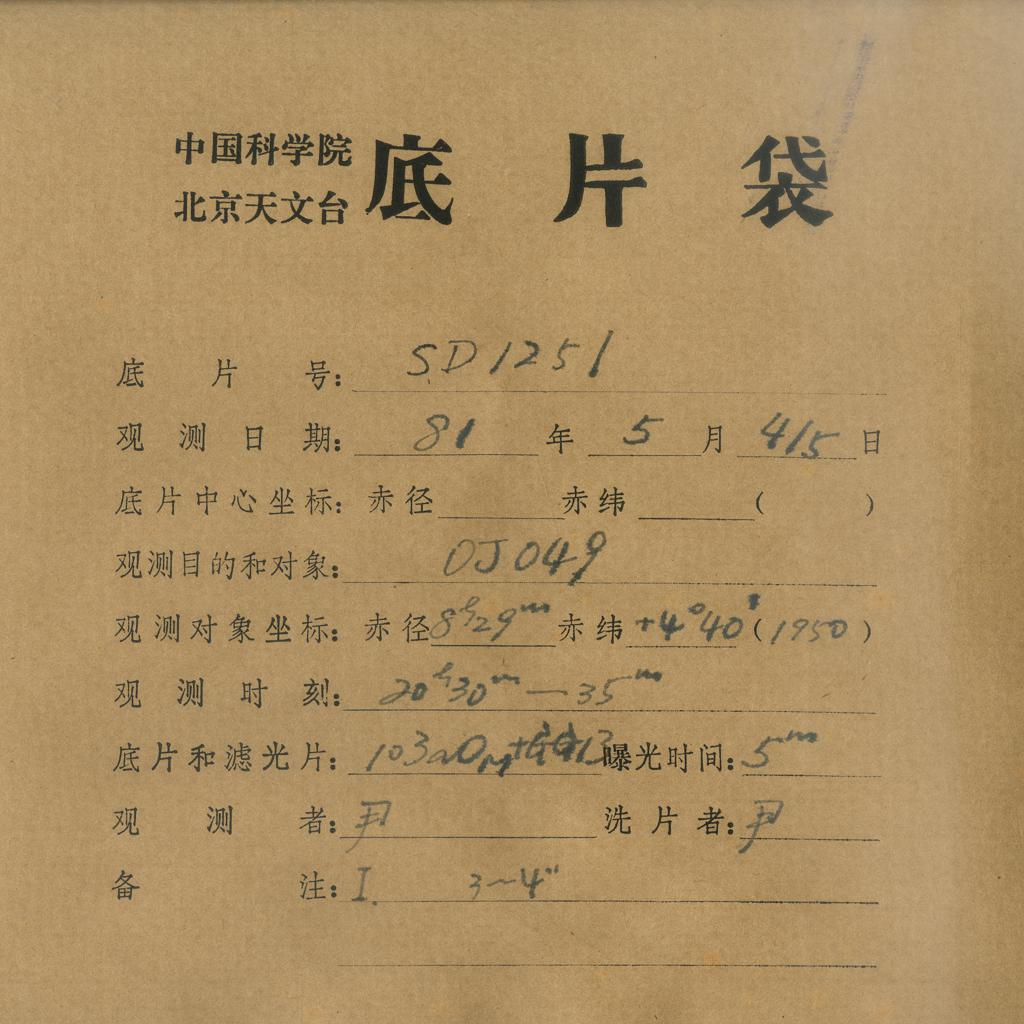 中国科学院
北京天文台
底片袋
底片号: SD1251
观测日期: 81年 5月 4/5日
底片中心坐标: 赤径 赤纬 ( )
观测目的和对象: OJ049
观测对象坐标: 赤径8ʰ29ᵐ 赤纬+4°40′(1950)
观测时刻: 20ʰ30ᵐ—35ᵐ
底片和滤光片: 103aO 曝光时间: 5ᵐ
观测者: 尹 洗片者: 尹
备注: I. 3~4"